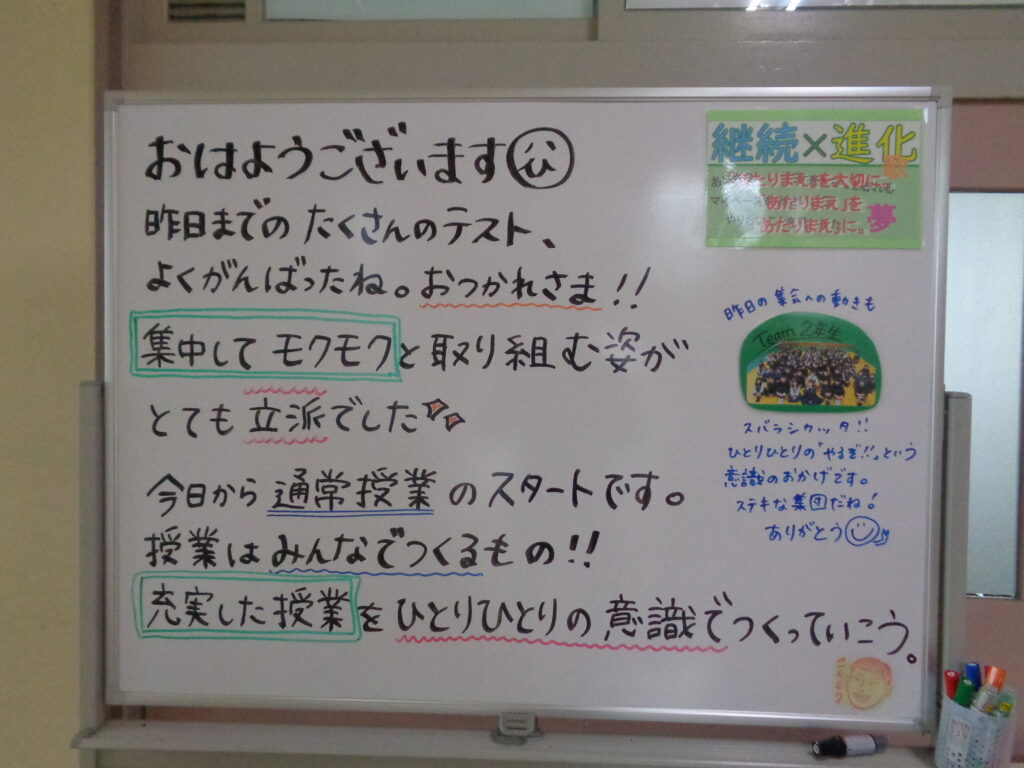 おはようございます
昨日までの たくさんのテスト、
よくがんばったね。おつかれさま!!
集中して モクモクと 取り組む姿が
とても 立派でした
今日から 通常授業 の スタートです。
授業は みんなでつくるもの!!
充実した授業を ひとりひとりの 意識でつくっていこう。
継続×進化
あたりまえを大切に
「あたりまえ」を
あたりまえに。
夢
昨日の 集会への動きも
Team 2年生
スバラシカッタ!!
ひとりひとりの「やるぞ!!」という
意識のおかげです。
ステキな集団だね!
ありがとう